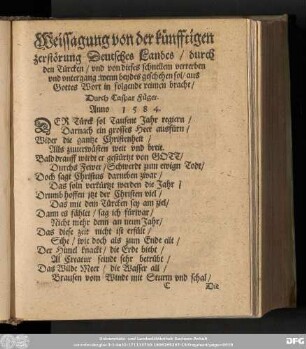 Weissagung von der künfftigen
zerstörung Deutsches Landes / durch
den Türcken / vnd von dieses schnellem verterben
vnd vntergang wenn beydes geschehen sol / aus
Gottes Wort in folgende reimen bracht /
Durch Caspar Füger.
Anno 1584.
DER Türck sol Tausent Jahr regiern /
Darnach ein grosses Heer ausfürn /
Wider die gantze Christenheit /
Alls zuuerwüsten weit vnd breit.
Bald drauff wirdt er gestürtzt von GOTT /
Durchs Fewer / Schwerdt zum ewign Todt /
Doch sagt Christus darneben zwar /
Das soln verkürtzt werden die Jahr /
Drumb hoffen jtzt der Christen viel /
Das mit dem Türcken sey am ziel /
Dann es fählet / sag ich fürwar /
Nicht mehr denn an neun Jahr /
Das diese zeit nicht ist erfült /
Sihe / wie doch als zum Ende eilt /
Der Himel knackt / die Erde bebt /
All Creatur seund sehr betrübt /
Das Wilde Meer / die Wasser all /
Brausen vom Windt mit Sturm vnd schal /
C Die